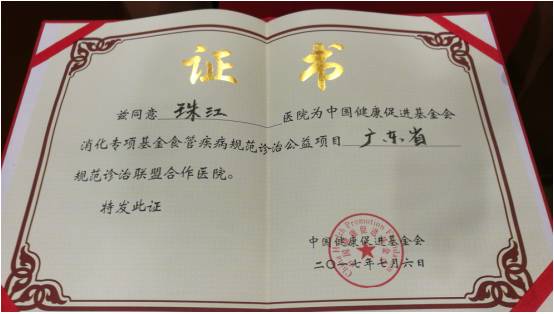 证书
兹同意 珠江 医院为中国健康促进基金会
消化专项基金食管疾病规范诊治公益项目 广东省
规范诊治联盟合作医院。
特发此证
中国健康促进基金会
二〇一七年七月六日
China Health Promotion Foundation
中国健康促进基金会